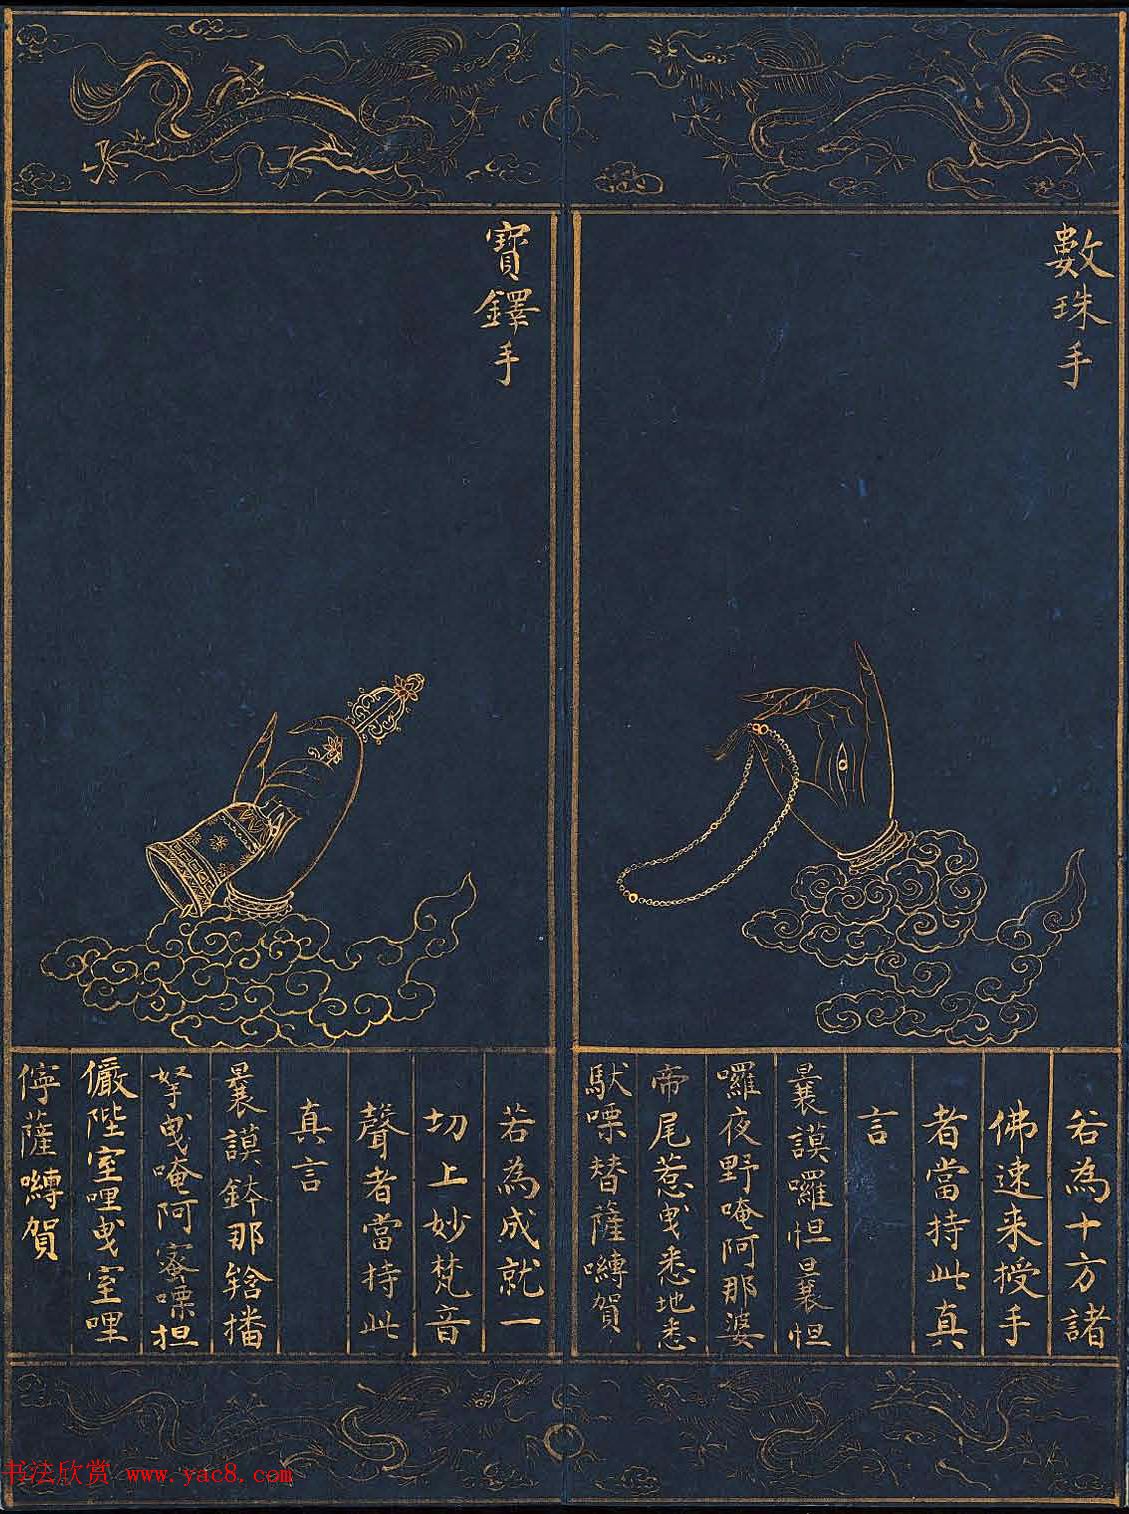 數珠手
若為十方諸
佛速来授手
者當持此真
言
曩謨囉怛曩怛
囉夜野唵阿那婆
帝尾惹曳悉地悉
馱㗚替薩嚩賀
寶鐸手
若為成就一
切上妙梵音
聲者當持此
真言
曩謨鉢那𩐎播
拏曳唵阿蜜㗚担
儼陛室哩曳室哩
儜薩嚩賀
书法欣赏 www.yac8.com